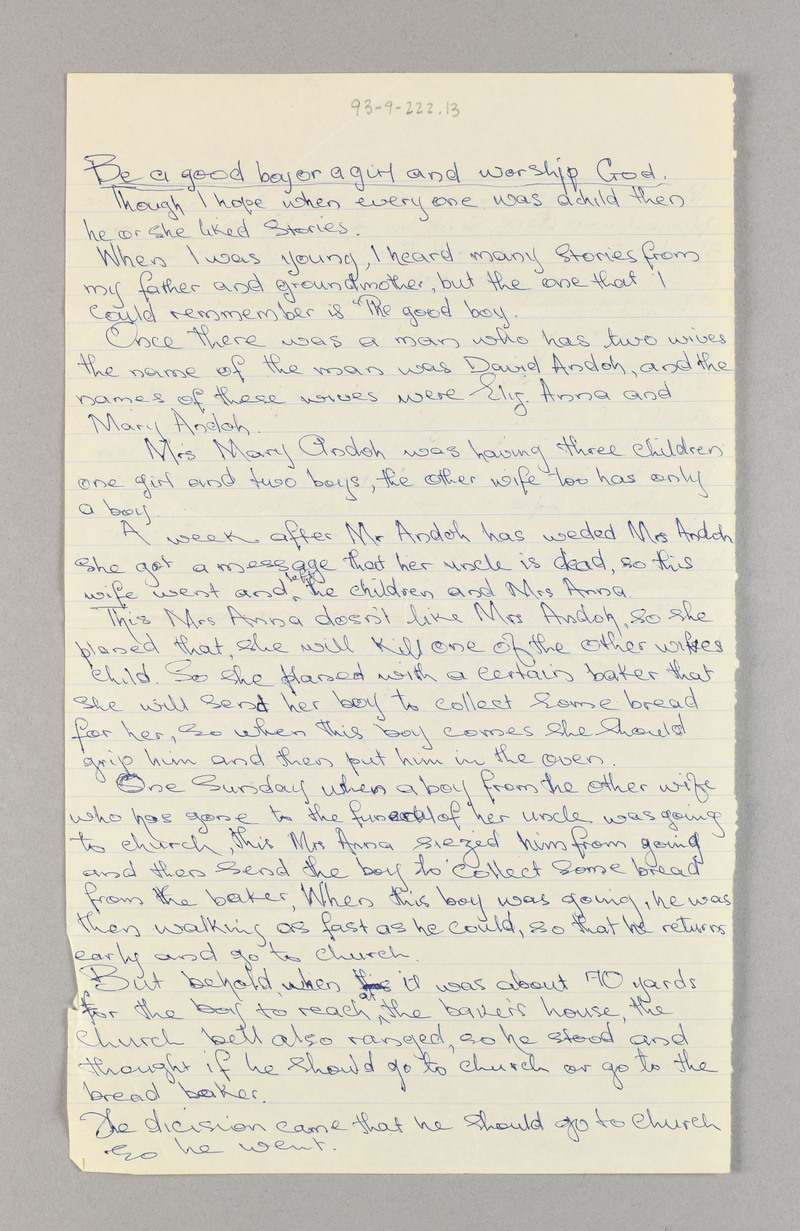 93-9-222.13
Be a good boy or a girl and worship God.
Though I hope when every one was a child then
he or she liked stories.
When I was young, I heard many stories from
my father and groundmother, but the one that I
could remmember is "The good boy.
Once there was a man who has two wives
the name of the man was David Andoh, and the
names of these wives were Eliz. Anna and
Mary Andoh.
Mrs Mary Andoh was having three children
one girl and two boys, the other wife too has only
a boy.
A week after Mr Andoh has weded Mrs Andoh
she got a message that her uncle is dead, so this
wife went and the children and Mrs Anna.
This Mrs Anna dosn't like Mrs Andoh, so she
planed that, she will kill one of the other wifes
child. So she planed with a certain baker that
she will send her boy to collect some bread
for her, so when this boy comes she should
grip him and then put him in the oven.
One Sunday when a boy from the other wife
who has gone to the funeral of her uncle was going
to church, this Mrs Anna siezed him from going
and then send the boy to collect some bread
from the baker, When this boy was going, he was
then walking as fast as he could, so that he returns
early and go to church.
But behold, when it was about 70 yards
for the boy to reach at the baker's house, the
church bell also ranged, so he stood and
thought if he should go to church or go to the
bread baker.
The dicision came that he should go to church
so he went.